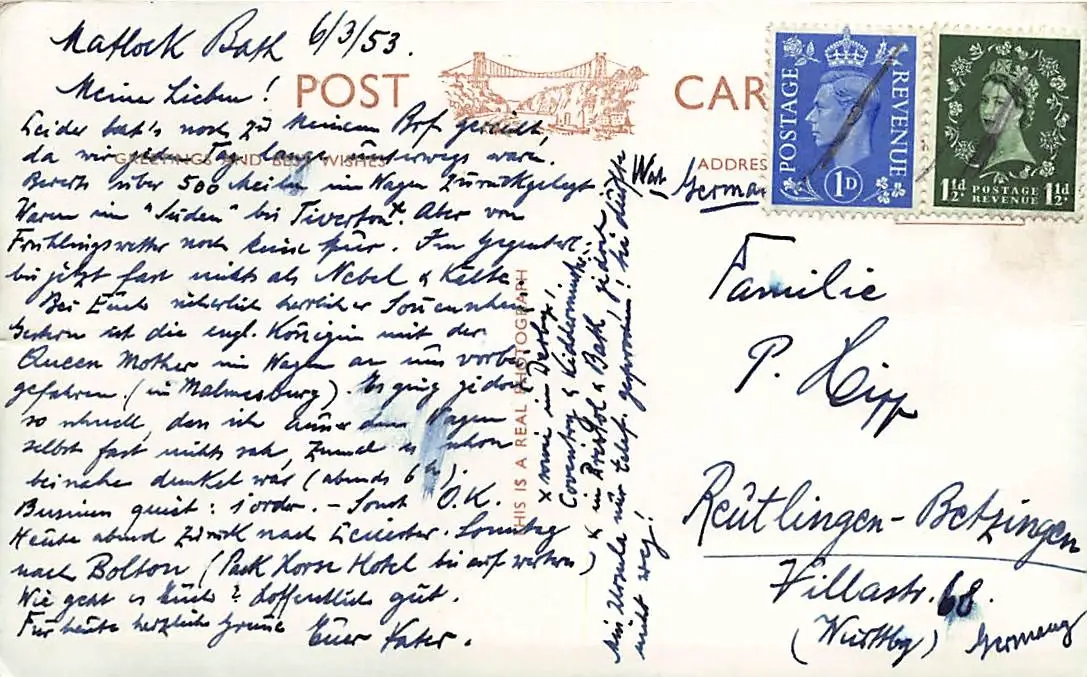 Matlock Bath 6/3/53.
POST CAR
Meine Lieben!
GREETINGS AND BEST WISHES
Leider hat's noch zu keinem Brf. gereicht,
da wir jeden Tag lange unterwegs waren.
Bereits über 500 Meilen im Wagen zurückgelegt.
Waren im "Süden" bis Tiverton. Aber von
Frühlingswetter noch keine Spur. Im Gegenteil:
bis jetzt fast nichts als Nebel & Kälte.
Bei Euch sicherlich herrlicher Sonnenschein.
Gestern ist die engl. Königin mit der
Queen Mother im Wagen an uns vorbei
gefahren. (in Malmesbury). Es ging jedoch
so schnell, dass ich ausser dem Wagen
selbst fast nichts sah, zumal es schon
beinahe dunkel war (abends 6 h).
Business quiet: 1 order. - Sonst O.K.
Heute abend zurück nach Leicester. Sonntag
nach Bolton (Pack Horse Hotel bis auf weiteres)
Wie geht es Euch? Hoffentlich gut.
Für heute herzliche Grüsse Euer Vater.
THIS IS A REAL PHOTOGRAPH
x sowie in Derby,
Coventry & Kidderminster.
x in Bristol & Bath jedoch
mit Ursula nur telef. gesprochen! Sie dürfte
nicht weg!
ADDRES
West Germa
POSTAGE REVENUE
1D
1½d POSTAGE REVENUE 1½d
Familie
P. Hipp
Reutlingen-Betzingen
Villastr. 68.
(Württbg) Germany